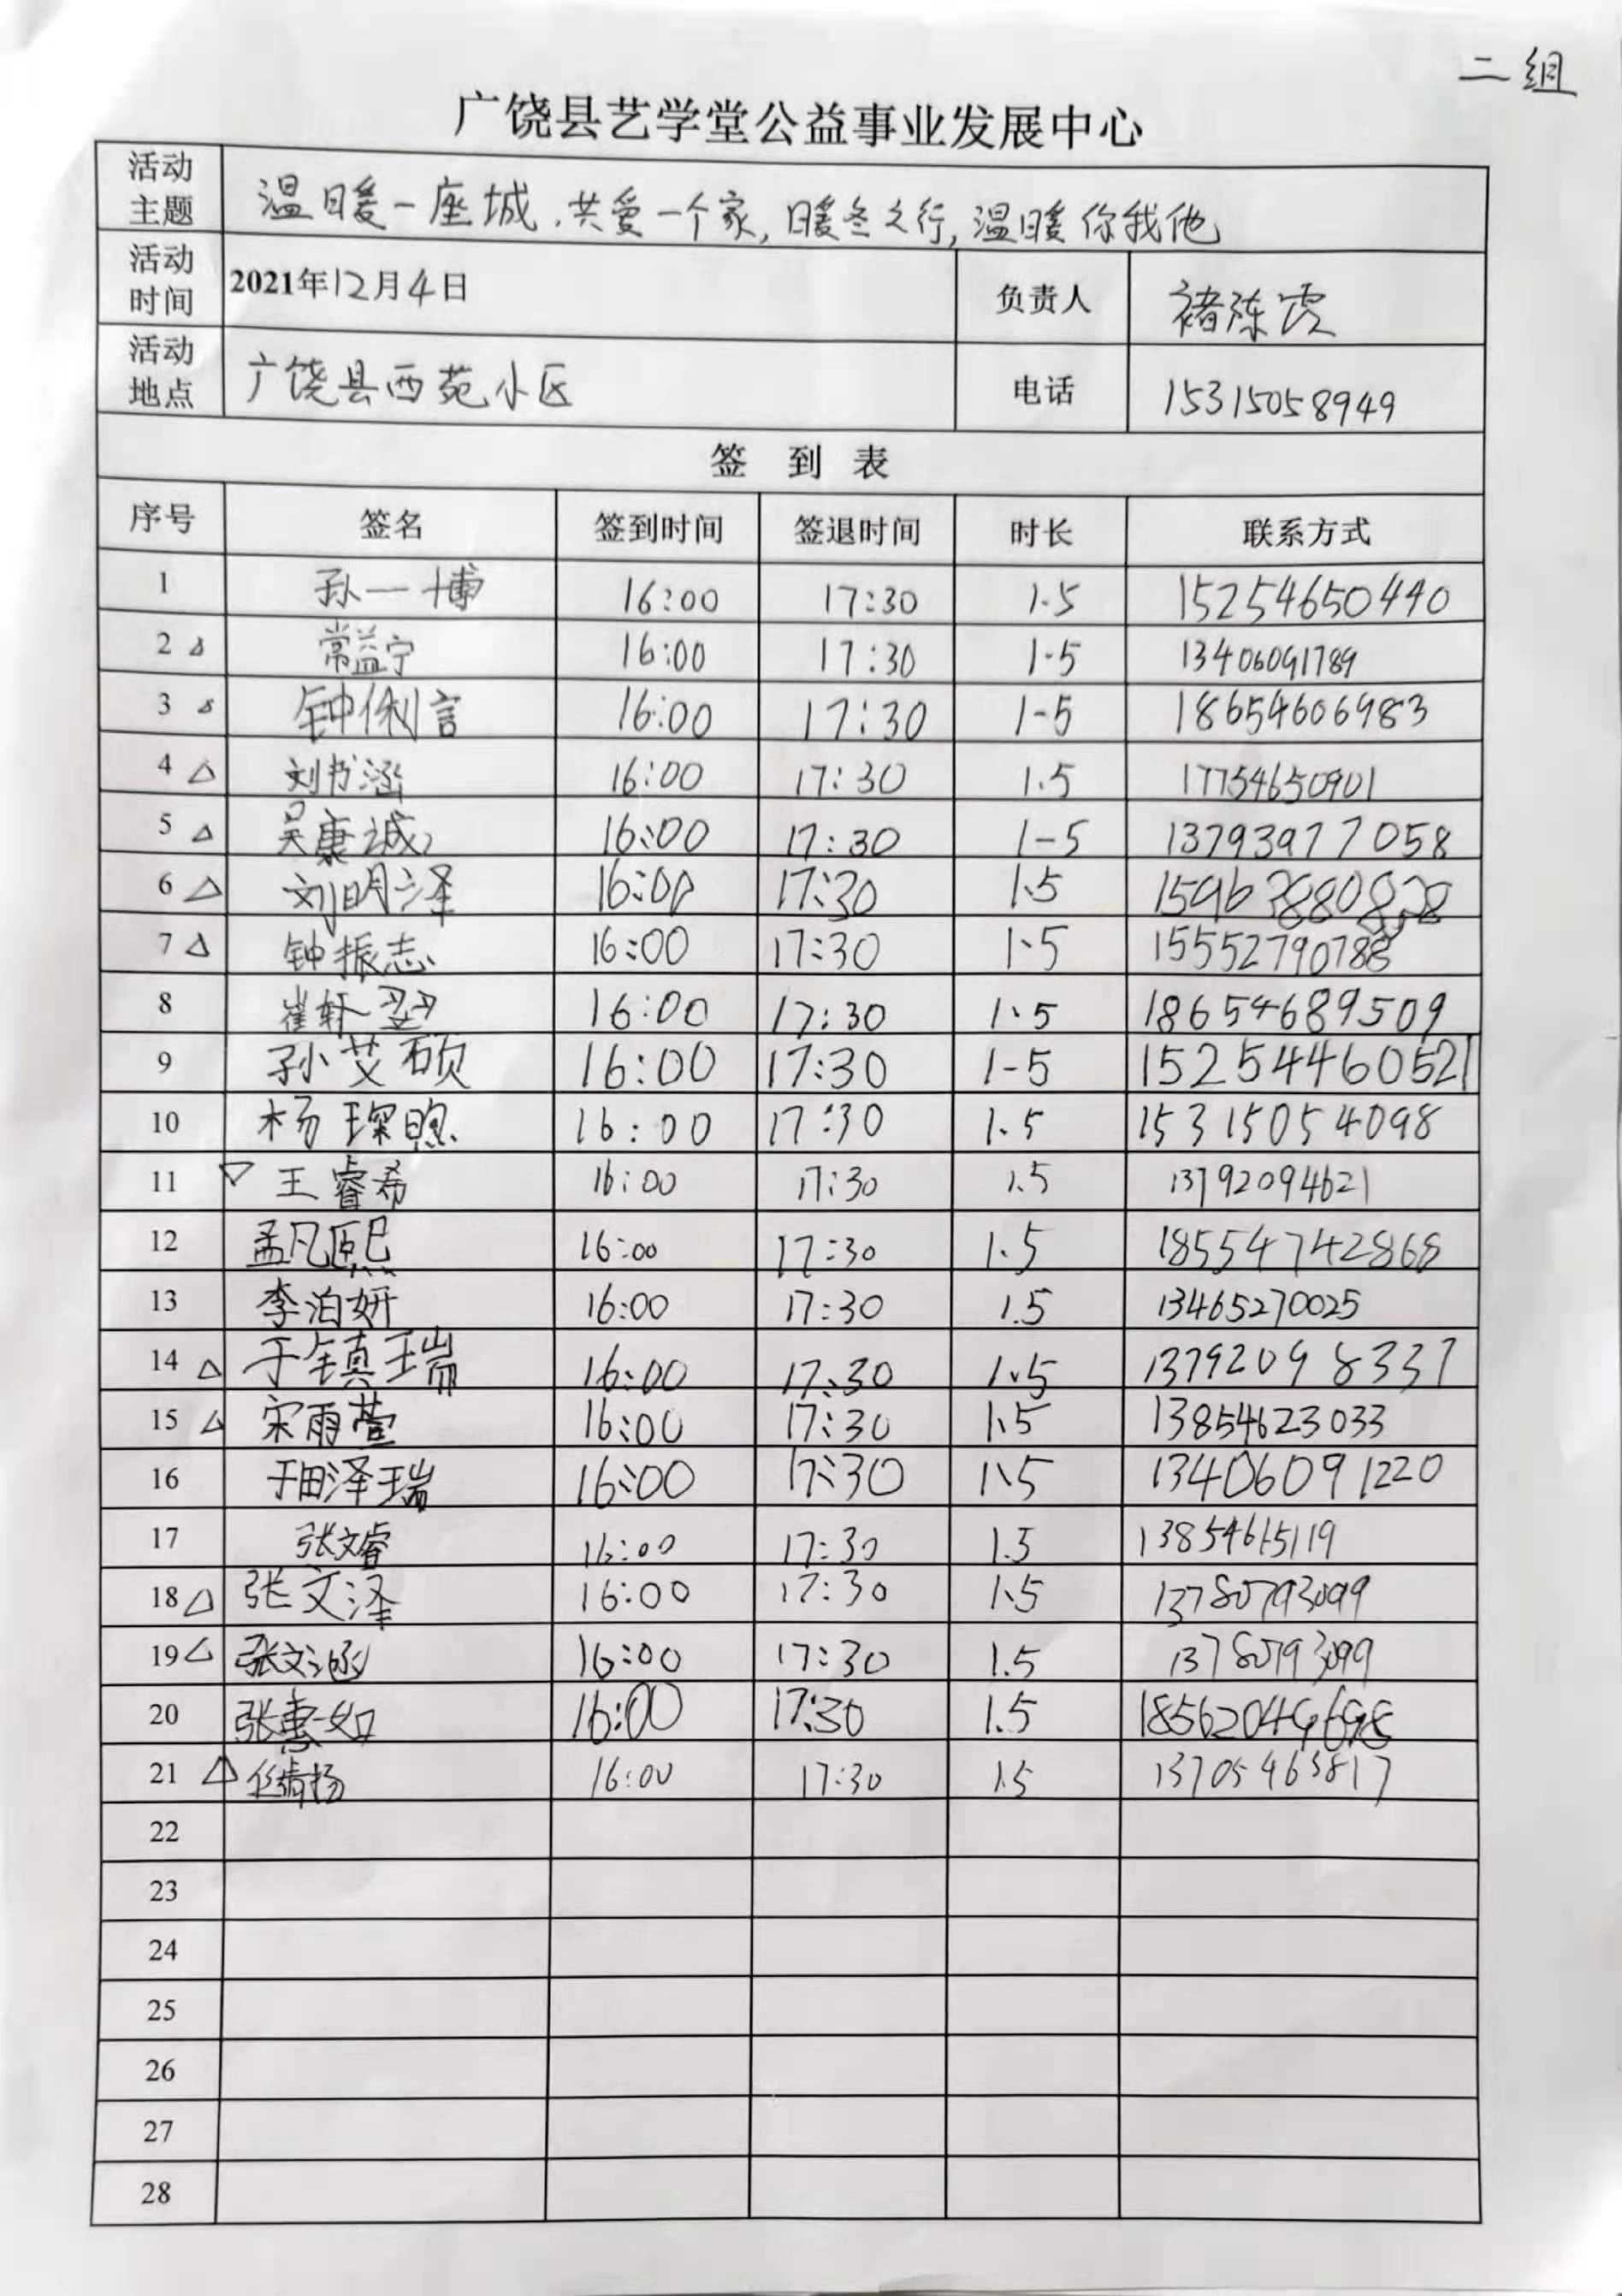 二组
广饶县艺学堂公益事业发展中心
活动主题 温暖一座城.共爱一个家,暖冬之行,温暖你我他
活动时间 2021年12月4日 负责人 褚陈霞
活动地点 广饶县西苑小区 电话 15315058949
签 到 表
序号 签名 签到时间 签退时间 时长 联系方式
1 孙一博 16:00 17:30 1.5 15254650440
2 △ 常益宁 16:00 17:30 1.5 13406091789
3 △ 钟俐言 16:00 17:30 1-5 18654606983
4 △ 刘书涵 16:00 17:30 1.5 17754650901
5 △ 吴康诚 16:00 17:30 1-5 13793977058
6 △ 刘明泽 16:00 17:30 1.5
7 △ 钟振志 16:00 17:30 1.5 15552790788
8 崔轩翌 16:00 17:30 1.5 18654689509
9 孙艾硕 16:00 17:30 1-5 15254460521
10 杨琛煦 16:00 17:30 1.5 15315054098
11 ▽ 王睿希 16:00 17:30 1.5 13792094621
12 孟凡熙 16:00 17:30 1.5 18554742868
13 李泊妍 16:00 17:30 1.5 13465270025
14 △ 于镇瑞 16:00 17:30 1.5 13792098337
15 △ 宋雨萱 16:00 17:30 1.5 13854623033
16 于田泽瑞 16:00 17:30 1.5 13406091220
17 张文睿 16:00 17:30 1.5 13854615119
18 △ 张文泽 16:00 17:30 1.5 13780793099
19 △ 张文涵 16:00 17:30 1.5 13780793099
20 张惠如 16:00 17:30 1.5
21 △ 任靖扬 16:00 17:30 1.5 13705463817
22
23
24
25
26
27
28